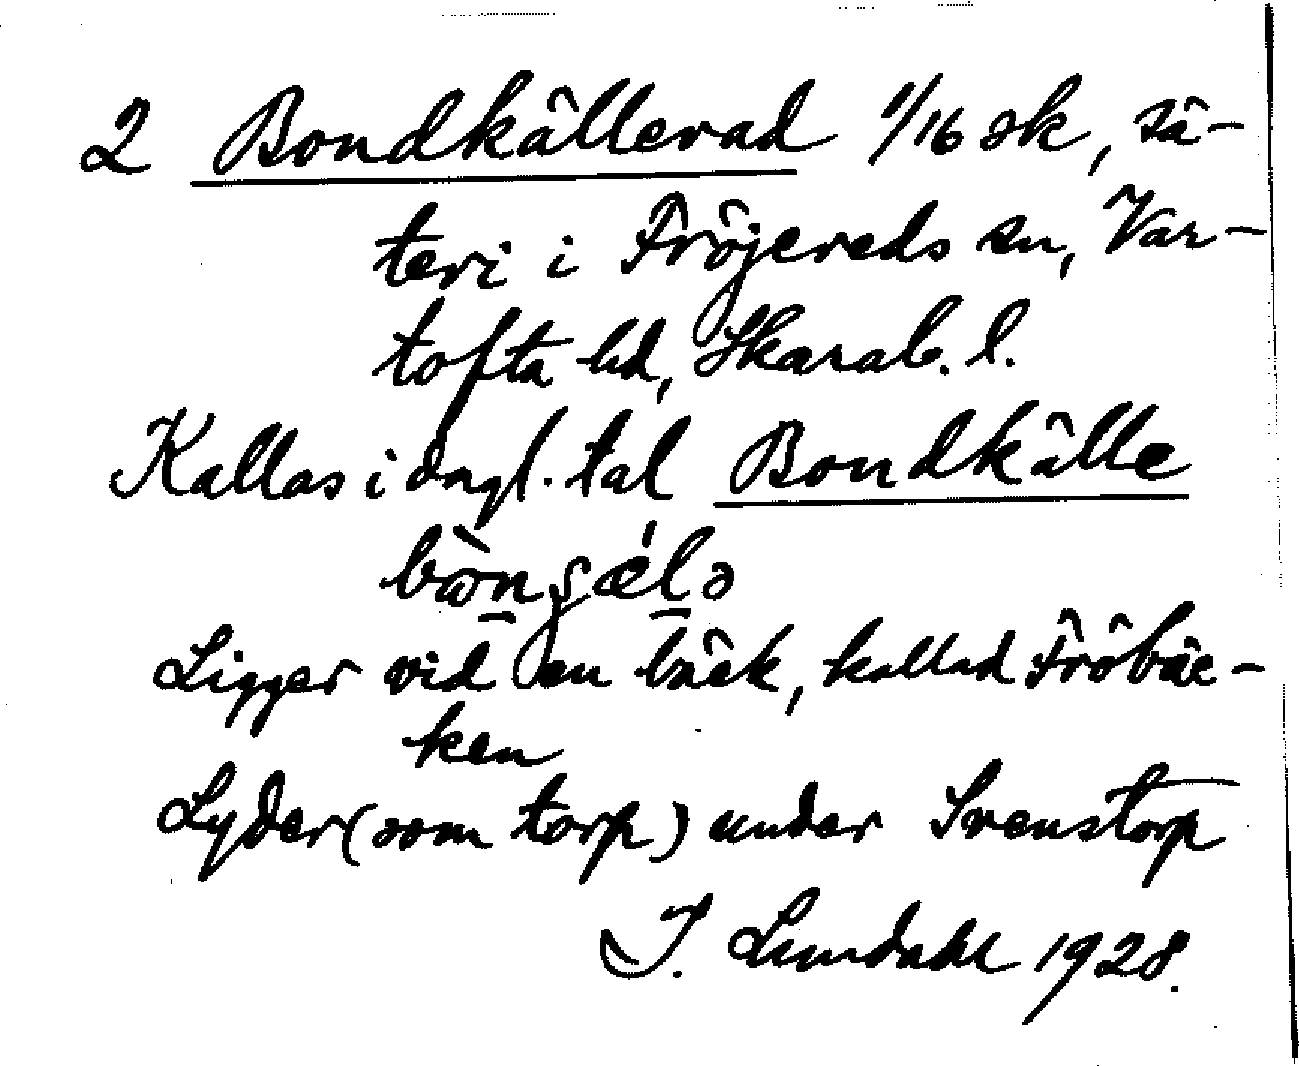 2 Bondkällerad 1/16 sk, sä-
teri i Fröjereds sn, Var-
tofta hd, Skarab. l.
Kallas i dagl. tal Bondkälle
Ligger vid en bäck, kallad Fröbäc-
ken
Lyder (som torp) under Svenstorp
I. Lundahl 1928.